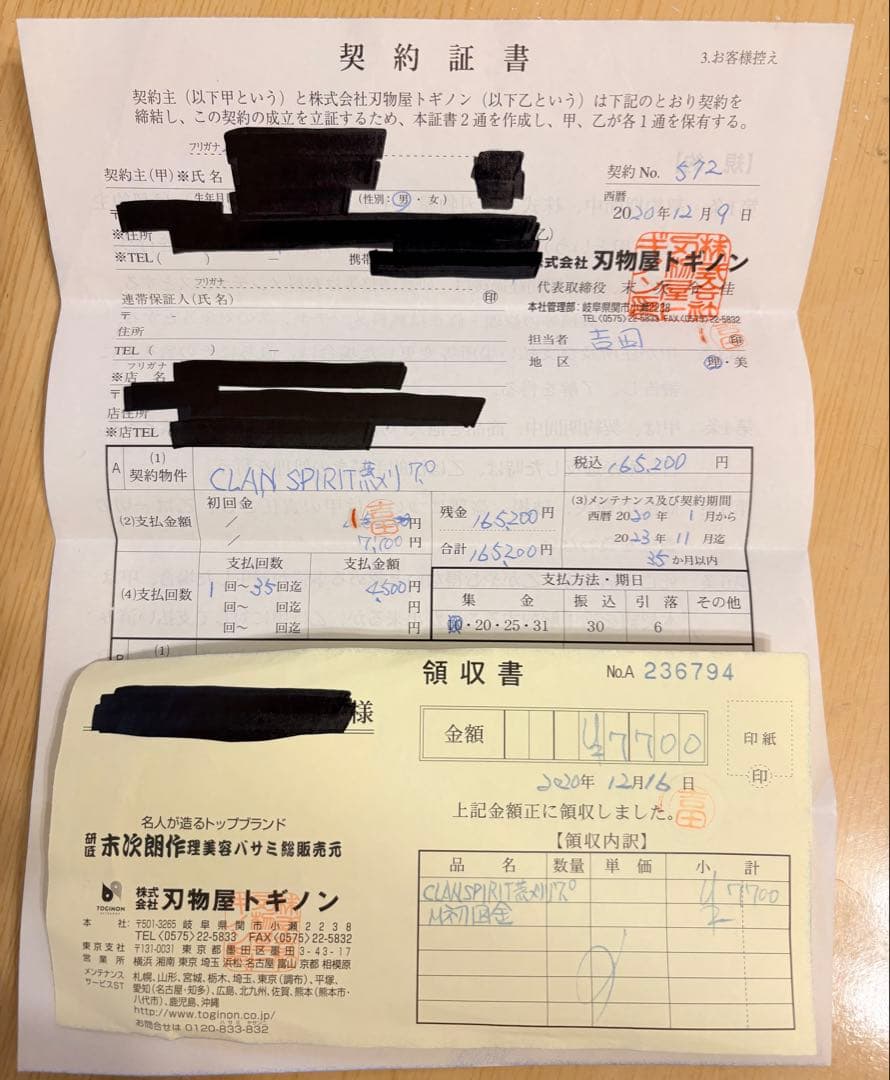 契約証書
3.お客様控え
契約主（以下甲という）と株式会社刃物屋トギノン（以下乙という）は下記のとおり契約を
締結し、この契約の成立を立証するため、本証書２通を作成し、甲、乙が各１通を保有する。
フリガナ
契約主(甲)※氏名
契約No. 572
生年月 (性別：男・女)
西暦
2020年12月9日
〒
※住所
乙)
※TEL( 携帯
株式会社 刃物屋トギノン
フリガナ
代表取締役 末 佳
連帯保証人(氏名) 印
本社管理部：岐阜県関市小瀬2238
TEL<0575>22-5833 FAX<0575>22-5832
〒 -
住所
担当者 吉田 印
TEL( ) －
地区 理・美
フリガナ
※店 名
〒
店住所
※店TEL
A (1)契約物件 CLAN SPIRIT 税込 165,200 円
(2)支払金額 初回金
／ 円
／ 7,700円
残金 165,200円
合計 165,200円
(3)メンテナンス及び契約期間
西暦 2020年 1月から
2023年 11月迄
35か月以内
(4)支払回数 支払回数 支払金額
1回〜35回迄 4,500円
回〜 回迄 円
回〜 回迄 円
支払方法・期日
集金 振込 引落 その他
10・20・25・31 30 6
(1)
領収書
No.A 236794
様
金額 ¥7700
印紙
印
2020年 12月16日
上記金額正に領収しました。
吉田
【領収内訳】
品名 数量 単価 小計
CLANSPIRIT ¥7700
初回金
名人が造るトップブランド
研匠 末次朗作理美容バサミ総販売元
TOGINON
株式会社 刃物屋トギノン
本社：〒501-3265 岐阜県関市小瀬２２３８
TEL<0575>22-5833 FAX<0575>22-5832
東京支社 〒131-0031 東京都墨田区墨田3-43-17
営業所 横浜 湘南 東京 埼玉 浜松 名古屋 富山 京都 相模原
メンテナンスサービスST 札幌、山形、宮城、栃木、埼玉、東京(調布)、平塚、
愛知(名古屋・知多)、広島、北九州、佐賀、熊本(熊本市・
八代市)、鹿児島、沖縄
http://www.toginon.co.jp/
お問合せは 0120-833-832